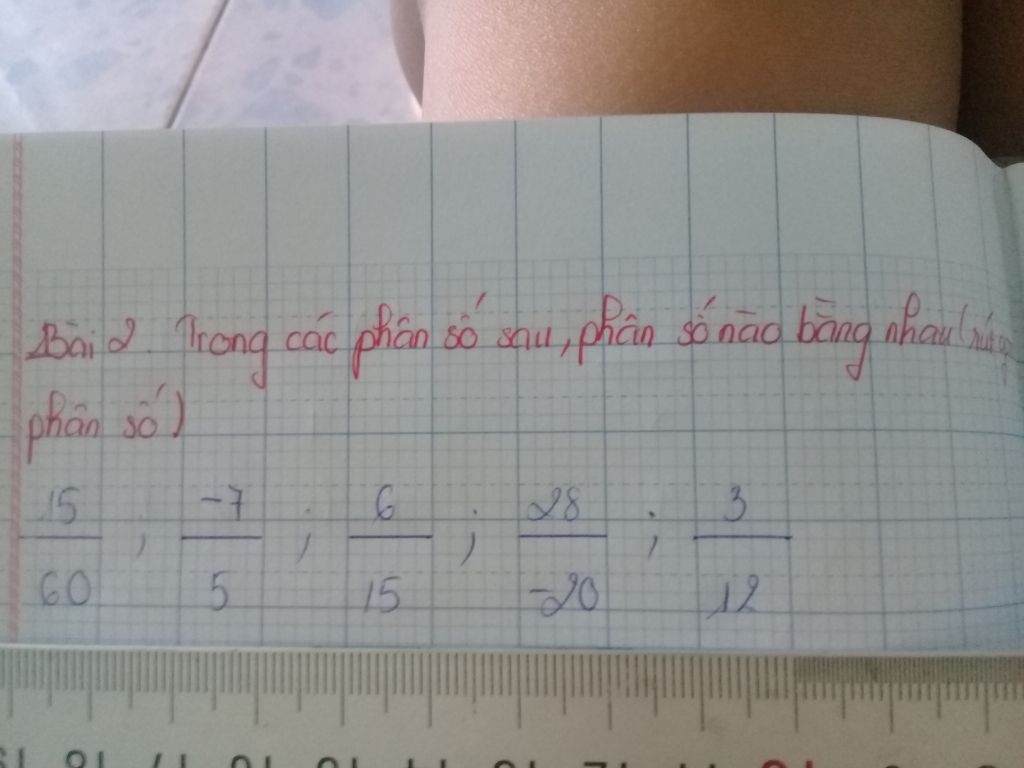 Bài 2. Trong các phân số sau, phân số nào bằng nhau (rút gọn
phân số)
15/60 ; -7/5 ; 6/15 ; 28/-20 ; 3/12